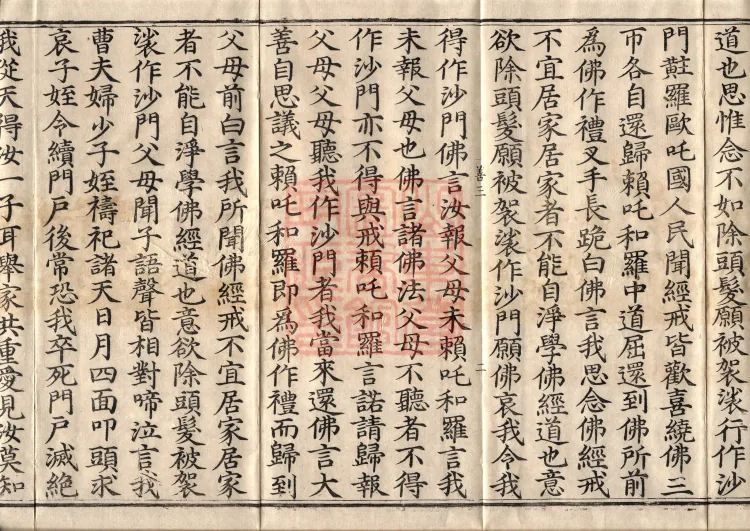 道也思惟念不如除頭髮願被袈裟行作沙
門黈羅歐吒國人民聞經戒皆歡喜繞佛三
帀各自還歸賴吒和羅中道屈還到佛所前
為佛作禮叉手長跪白佛言我思念佛經戒
不宜居家居家者不能自淨學佛經道也意
欲除頭髮願被袈裟作沙門願佛哀我令我
善三 二
得作沙門佛言汝報父母未賴吒和羅言我
未報父母也佛言諸佛法父母不聽者不得
作沙門亦不得與戒賴吒和羅言諾請歸報
父母父母聽我作沙門者我當來還佛言大
善自思議之賴吒和羅即爲佛作禮而歸到
父母前白言我所聞佛經戒不宜居家居家
者不能自淨學佛經道也意欲除頭髮被袈
裟作沙門父母聞子語聲皆相對啼泣言我
曹夫婦少子姪禱祀諸天日月四面叩頭求
哀子姪令續門戶後常恐我卒死門戶滅絕
我從天得汝一子耳舉家共重愛見汝莫知